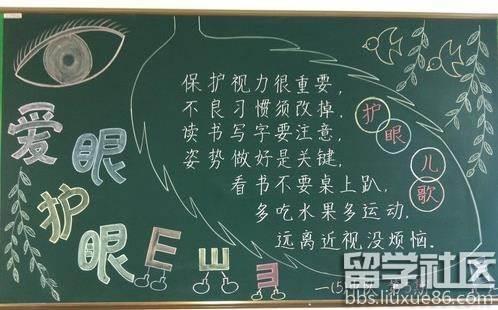 爱眼护眼
保护视力很重要，
不良习惯须改掉．
读书写字要注意，
姿势做好是关键．
看书不要桌上趴，
多吃水果多运动．
远离近视没烦恼．
护眼儿歌
E
留学社区
bbs.liuxue86.com